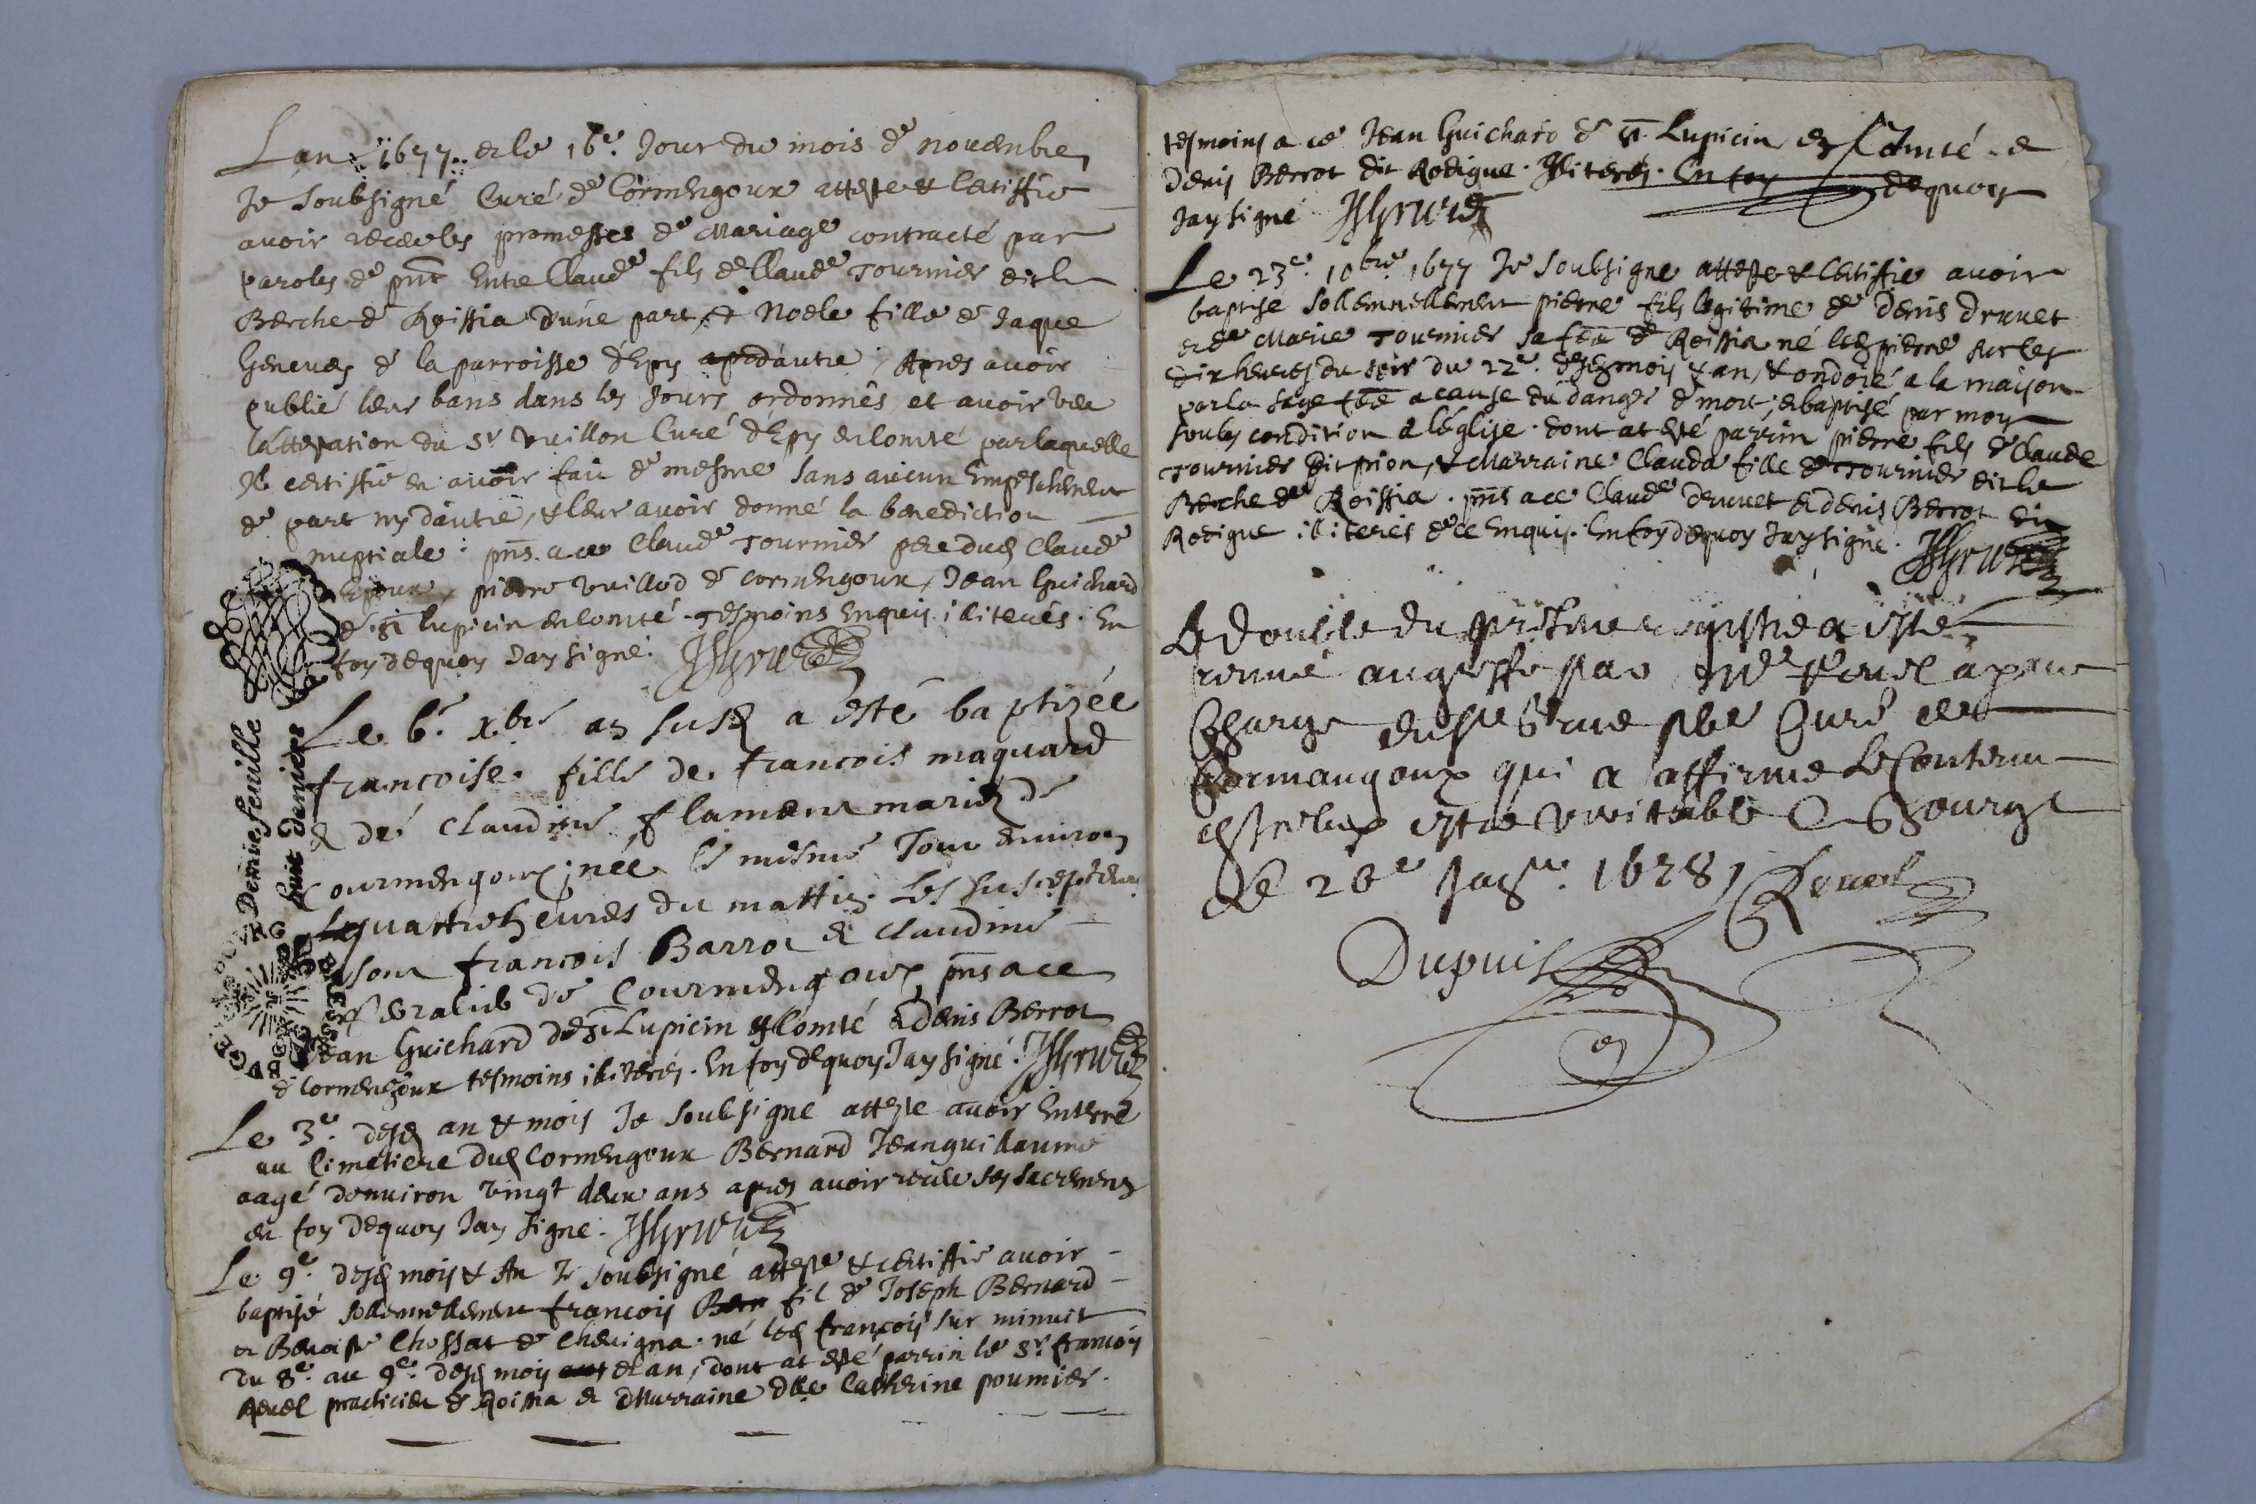 Lan 1677 et le 16e. Jour du mois de novembre
Je soubsigné Curé de Cormengoux atteste & Certiffie
avoir receu les promesses de Mariage contracté par
paroles de pnt Entre Claude fils de Claude Tournier dit le
Berche de Roissia d'une part, & Noele fille de Jaque
Geneves de la parroisse d'Epy d'autre, Apres avoir
publié leur bans dans les Jours ordonnés, et avoir veu
l'attestation du Sr Vuillon Curé d'Epy en Comté par laquelle
Il certiffie en avoir fait de mesme sans aucun Empeschement
de part ny d'autre, & leur avoir donné la benediction
nuptiale. pns. a ce Claude Tournier pere dud Claude
pierre Vuillod de Cormengoux, Jean Guichard
de St Lupicin en Comté. Tesmoins Enquis iliterés. En
foy de quoy Jay signé.
Le 6e. xbre an susd a esté baptizée
francoise. fille de francois maquard
& de claudine flament mariez de
Courmengoux, née le mesme Jour environ
les quattre heures du mattin. Les suscepteurs
sont francois Barrot & claudine
de Courmengoux, pns a ce
Jean Guichard de St Lupicin en Comté & denis Berrot
de Cormengoux tesmoins iliterés. En foy de quoy Jay signé.
Le 3e. desd an & mois Je soubsigné atteste avoir Enterré
au Cimetiere dud Cormengoux Bernard Jeanguillaume
aagé d'environ vingt deux ans apres avoir receu ses sacremens
en foy de quoy Jay signé.
Le 9e. desd mois & An Je soubsigné atteste & certiffie avoir
baptisé sollemnellement francois Bern fil de Joseph Bernard
et Benoiste Chossat de Chevigna. né led francois sur minuit
du 8e. au 9e. desd mois et an, dont at esté parrin le Sr. francois
Revel practicien de Roissia et Marraine dlle Catherine poumier.
Demie feuille
huit deniers
BOURG
BRESSE
tesmoins a ce Jean Guichard de St. Lupicin en Comté. &
denis Berrot dit Rodigue. Iliterés. En foy de quoy
Jay signé
Le 23e. 10bre 1677 Je soubsigné atteste & Certiffie avoir
baptise sollemnellement pierre fils legitime de denis druuet
et de Marie Tournier sa feme de Roissia né led pierre sur les
dix heures du soir du 22e. desd mois & an, & ondoié a la maison
par la sage feme a cause du danger de mort; et baptisé par moy
soubs condition a l'église. dont at esté parrin pierre fils de Claude
Tournier dit prion, & Marraine Clauda fille de Tournier dit le
Berche de Roissia. pns a ce Claude druuet et denis Berrot dit
Rodigue iliterés de ce Enquis. En foy de quoy Jay signé.
Le double du présent registre a esté
remis au greffe par Mre Revel a pnt
Charge de Mre pbre Curé de
Cormangoux qui a affirmé le Contenu
estre veritable a Bourg
Le 26e Janr. 1678 Revel
Dupuis